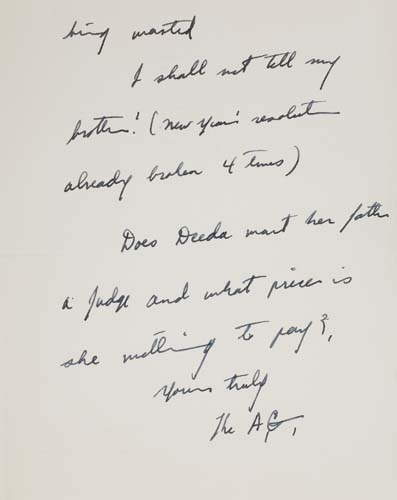 being wasted
I shall not tell my
brother! (New Year's resolution
already broken 4 times)
Does Deeda want her father
a Judge and what price is
she willing to pay?,
Yours truly
The AG,